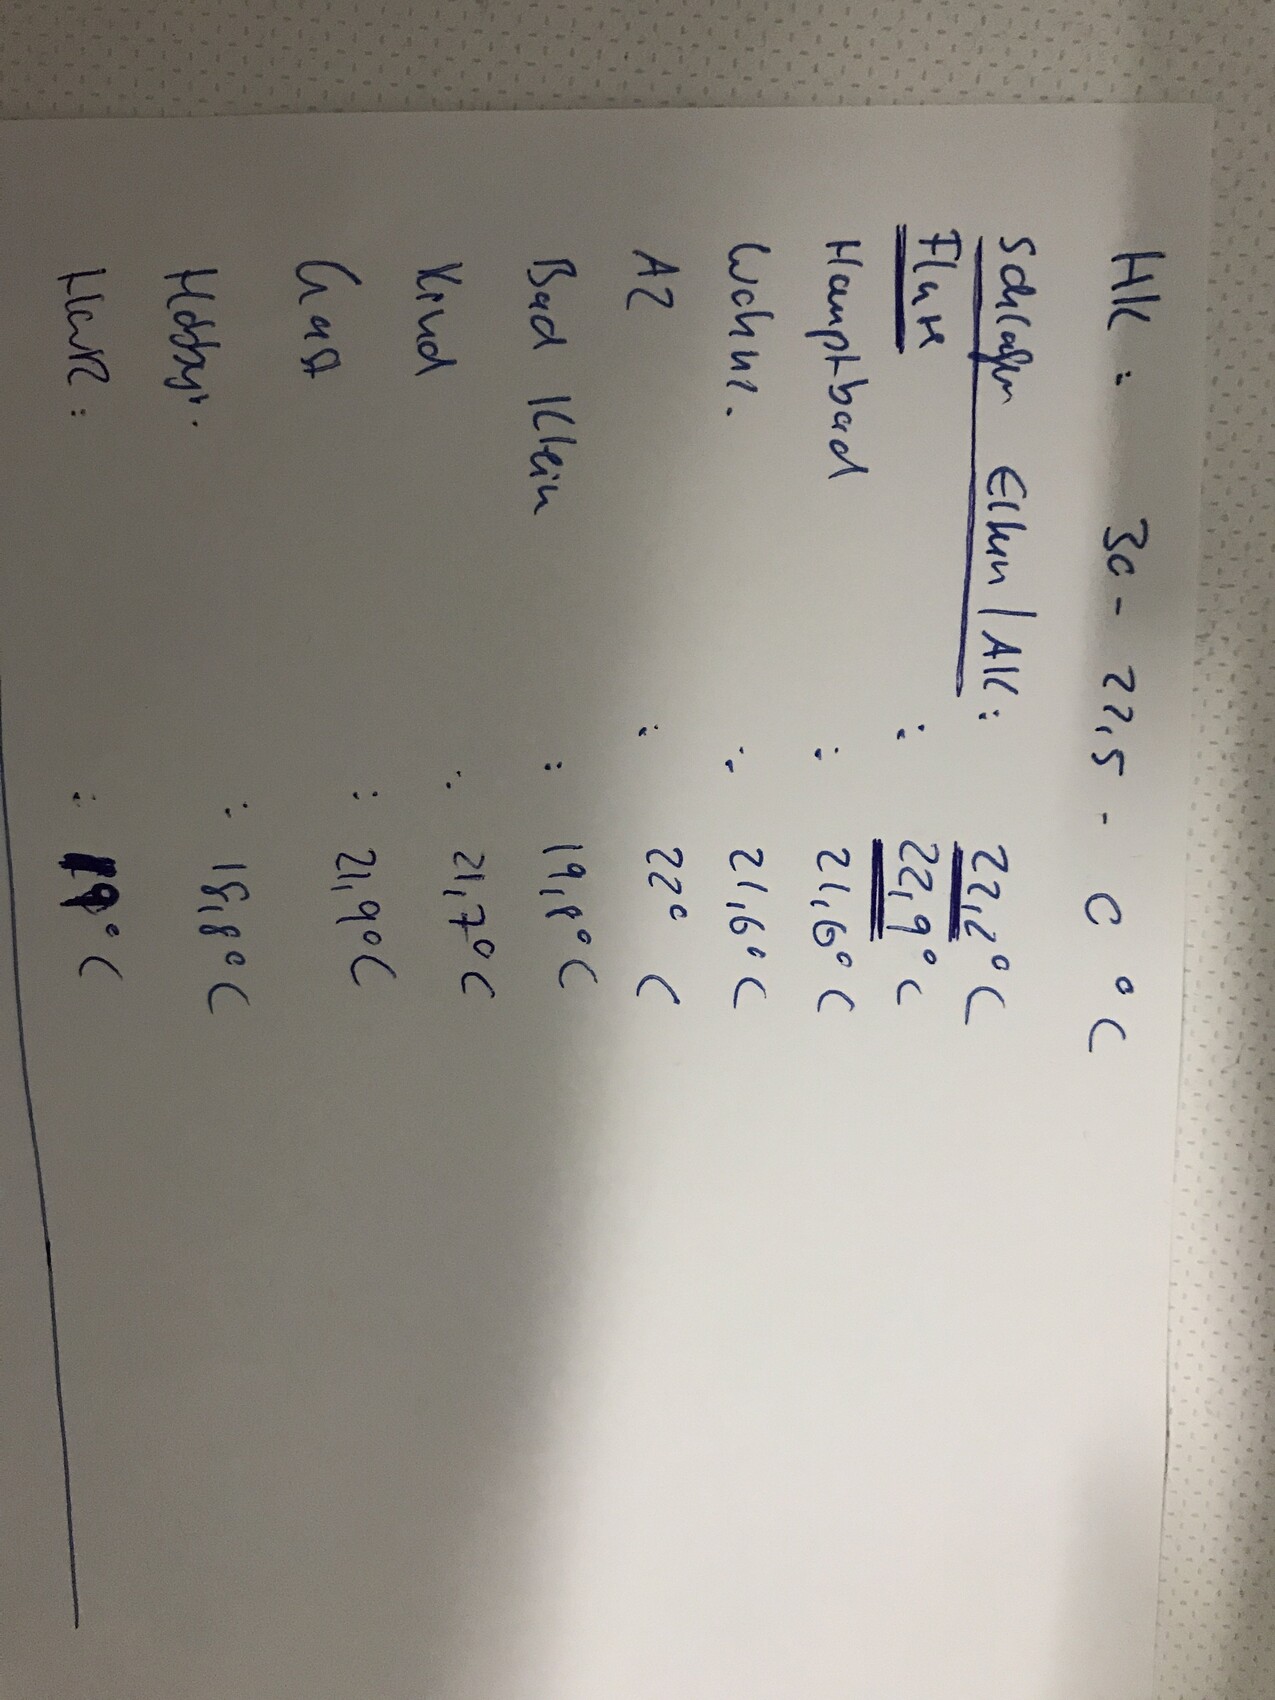 HK : 30 - 22,5 - 0 °C
Schlafen Eltern / AK : 22,2°C
Flure : 22,9°C
Hauptbad : 21,6°C
Wohnz. : 21,6°C
AZ : 22° C
Bad Klein : 19,8°C
Kind : 21,7°C
Gast : 21,9°C
Hobbyr. : 18,8°C
: 19°C